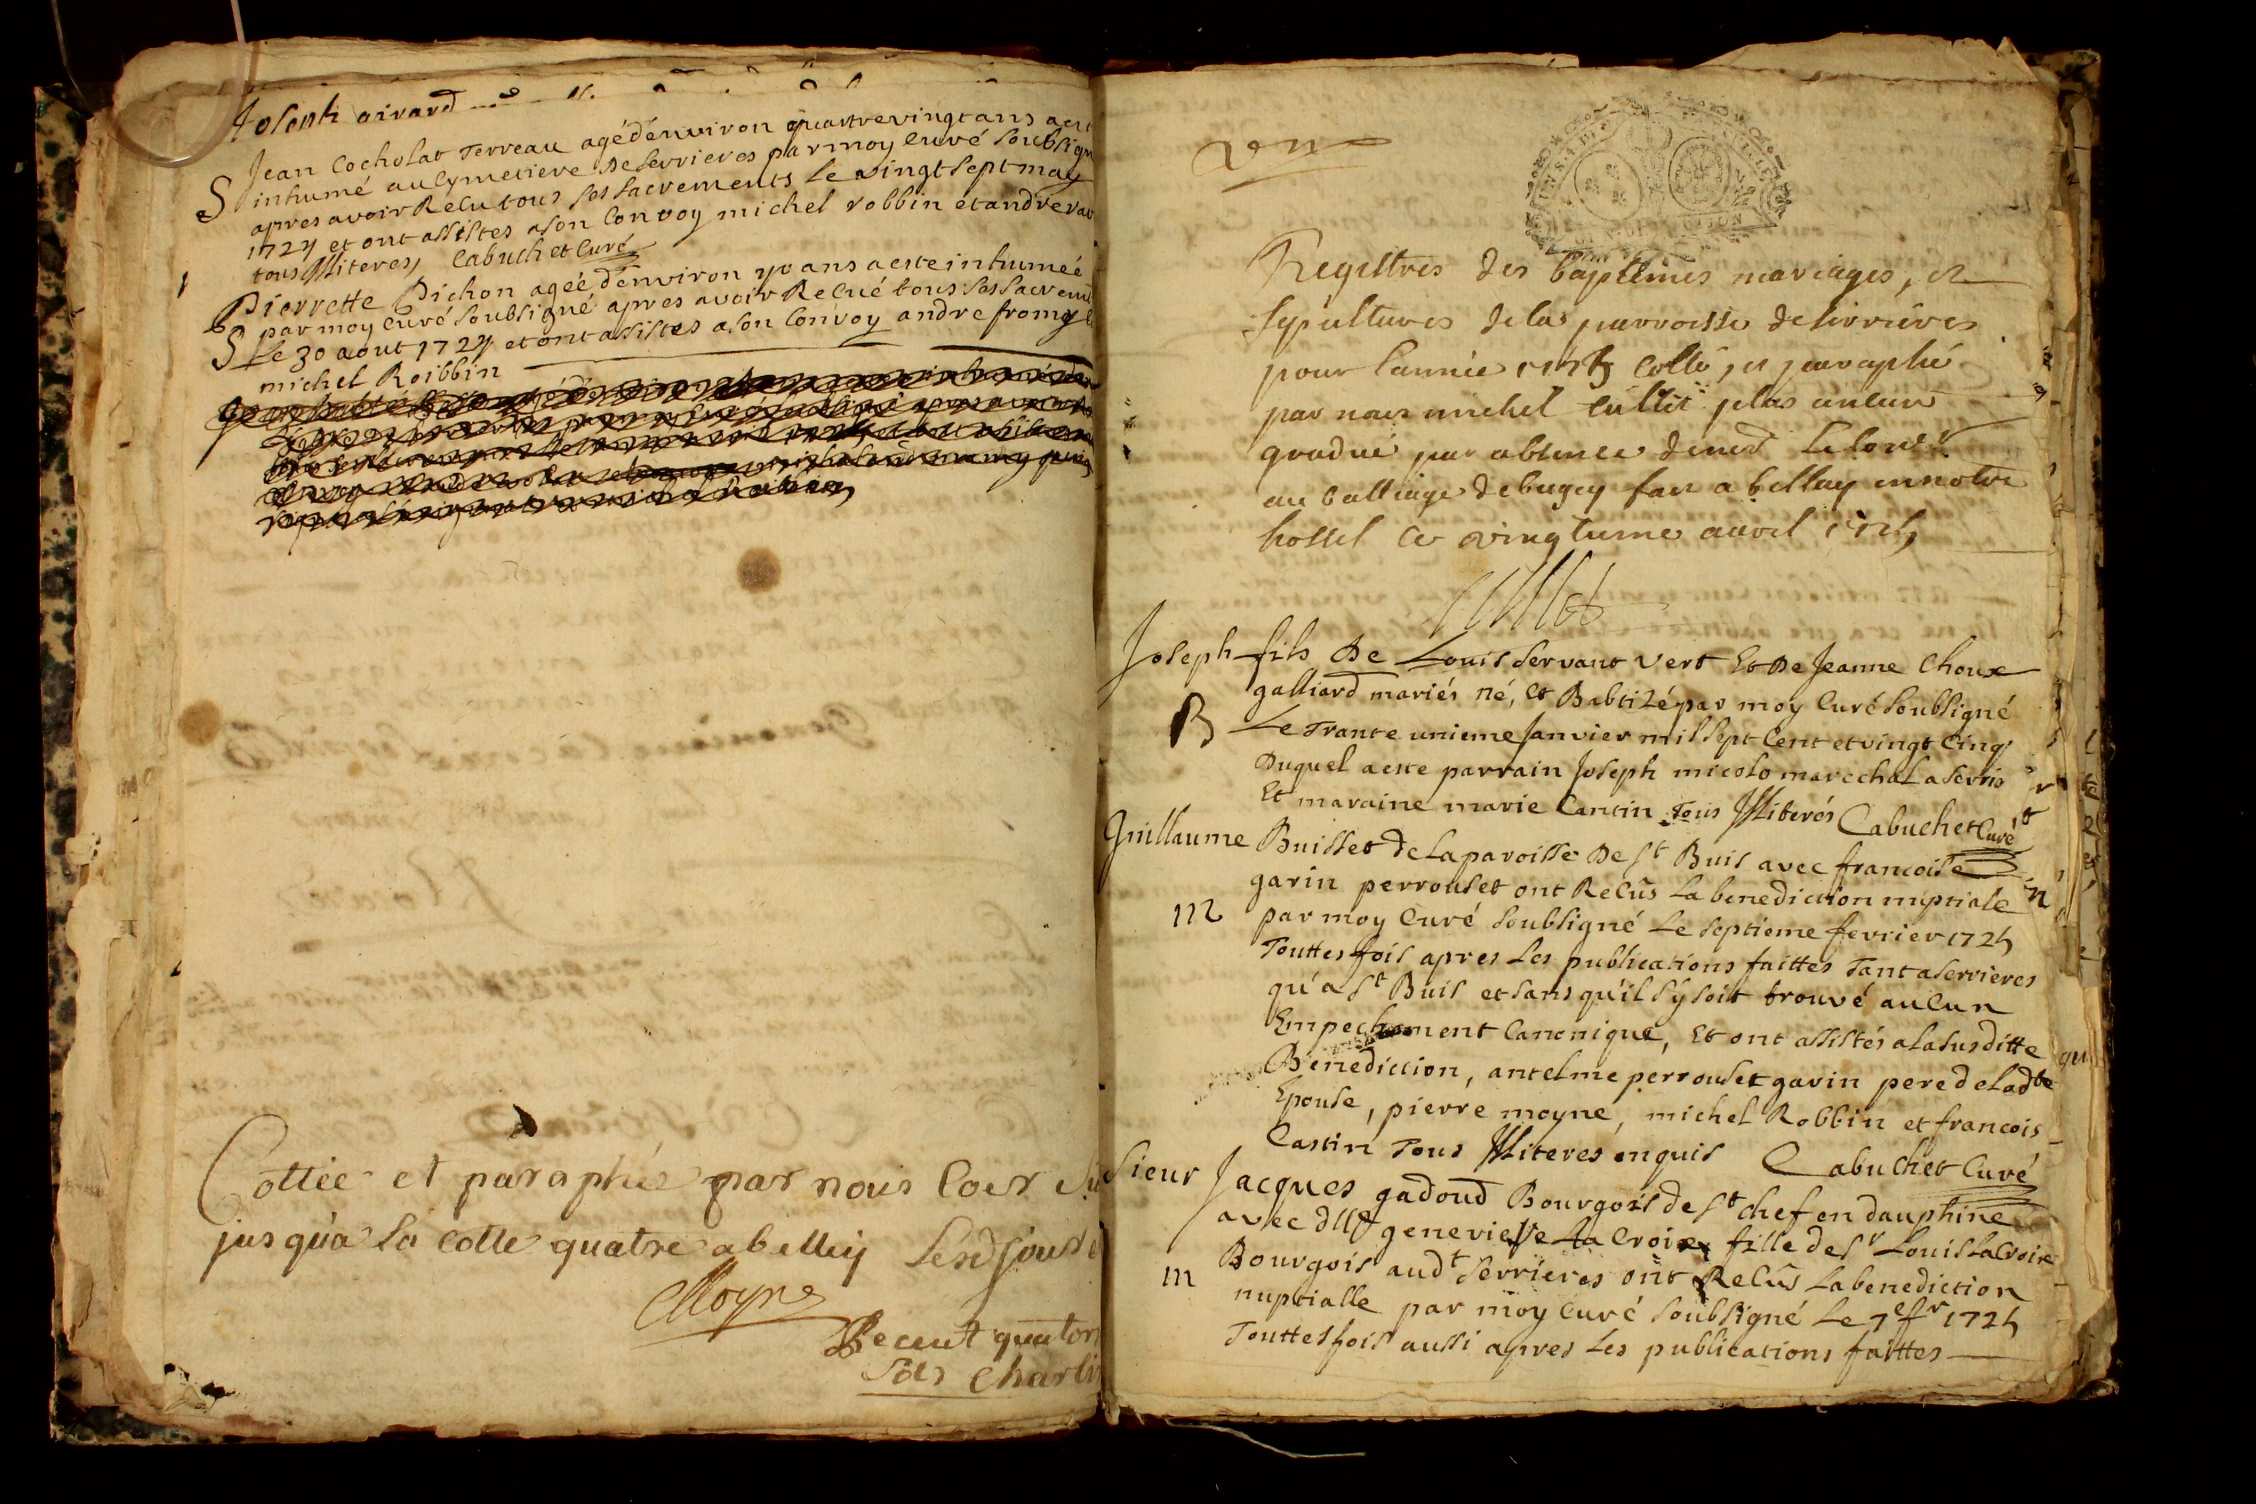 Joseph girard
Jean Cocholat Terreau agé d'environ quatrevingt ans a esté
S inhumé au Cymetiere de Serrieres par moy Curé soubsigné
apres avoir Recu tous ses sacrements Le vingt sept may
1724 et ont assistes a son Convoy michel robbin et andre
tous Illiteres, Cabuchet Curé
Pierrette Pichon agéé d'environ 40 ans a este inhumeé
par moy Curé soubsigné apres avoir Recué tous ses sacrem
S Le 30 aout 1724 et ont assistes a son Convoy andre fromy
michel Roibbin
Cottée et paraphée par nous
jusqu'a la cotte quatre a belley Lesd jour
Moyne
Receut quator
sols Charli
un
Registres des baptêmes mariages, et
sepultures de la parroisse de Serrieres
pour l'année 1725 Cotté, et paraphé
par nous michel Cullet plus ancien
gradué par absence de
au balliage de bugey fait a bellay en notre
hostel ce vingtieme avril 1725
Cullet
Joseph fils De Louis Servant Vert Et De Jeanne Choux
galliard mariés né, Et Babtizé par moy Curé soubsigné
B Le Trante unieme Janvier mil sept Cent et vingt Cinq
Duquel a este parrain Joseph micolo marechal a Serris
Et maraine marie Cantin Tous Illiterés Cabuchet Curé
Guillaume Buisset de La paroisse De St Buis avec francoise
garin perrouset ont Recûs La benediction nuptiale
m par moy Curé soubsigné Le septieme fevrier 1725
Touttes fois apres Les publications faittes Tant a Serrieres
qu'a St Buis et sans qu'il s'y soit trouvé aucun
Empechement Canonique, Et ont assistés a La susditte
Benediction, antelme perrouset garin pere de Ladte
Epouse, pierre moyne, michel Robbin et francois
Castin Tous Illiteres enquis Cabuchet Curé
Sieur Jacques gadoud Bourgois de St chef en dauphine
avec dlle genevieve La Croix fille de Sr Louis La Croix
m Bourgois audt Serrieres ont Recûs La benediction
nuptialle par moy Curé soubsigné Le 7e fr 1725
Touttesfois aussi apres Les publications faittes